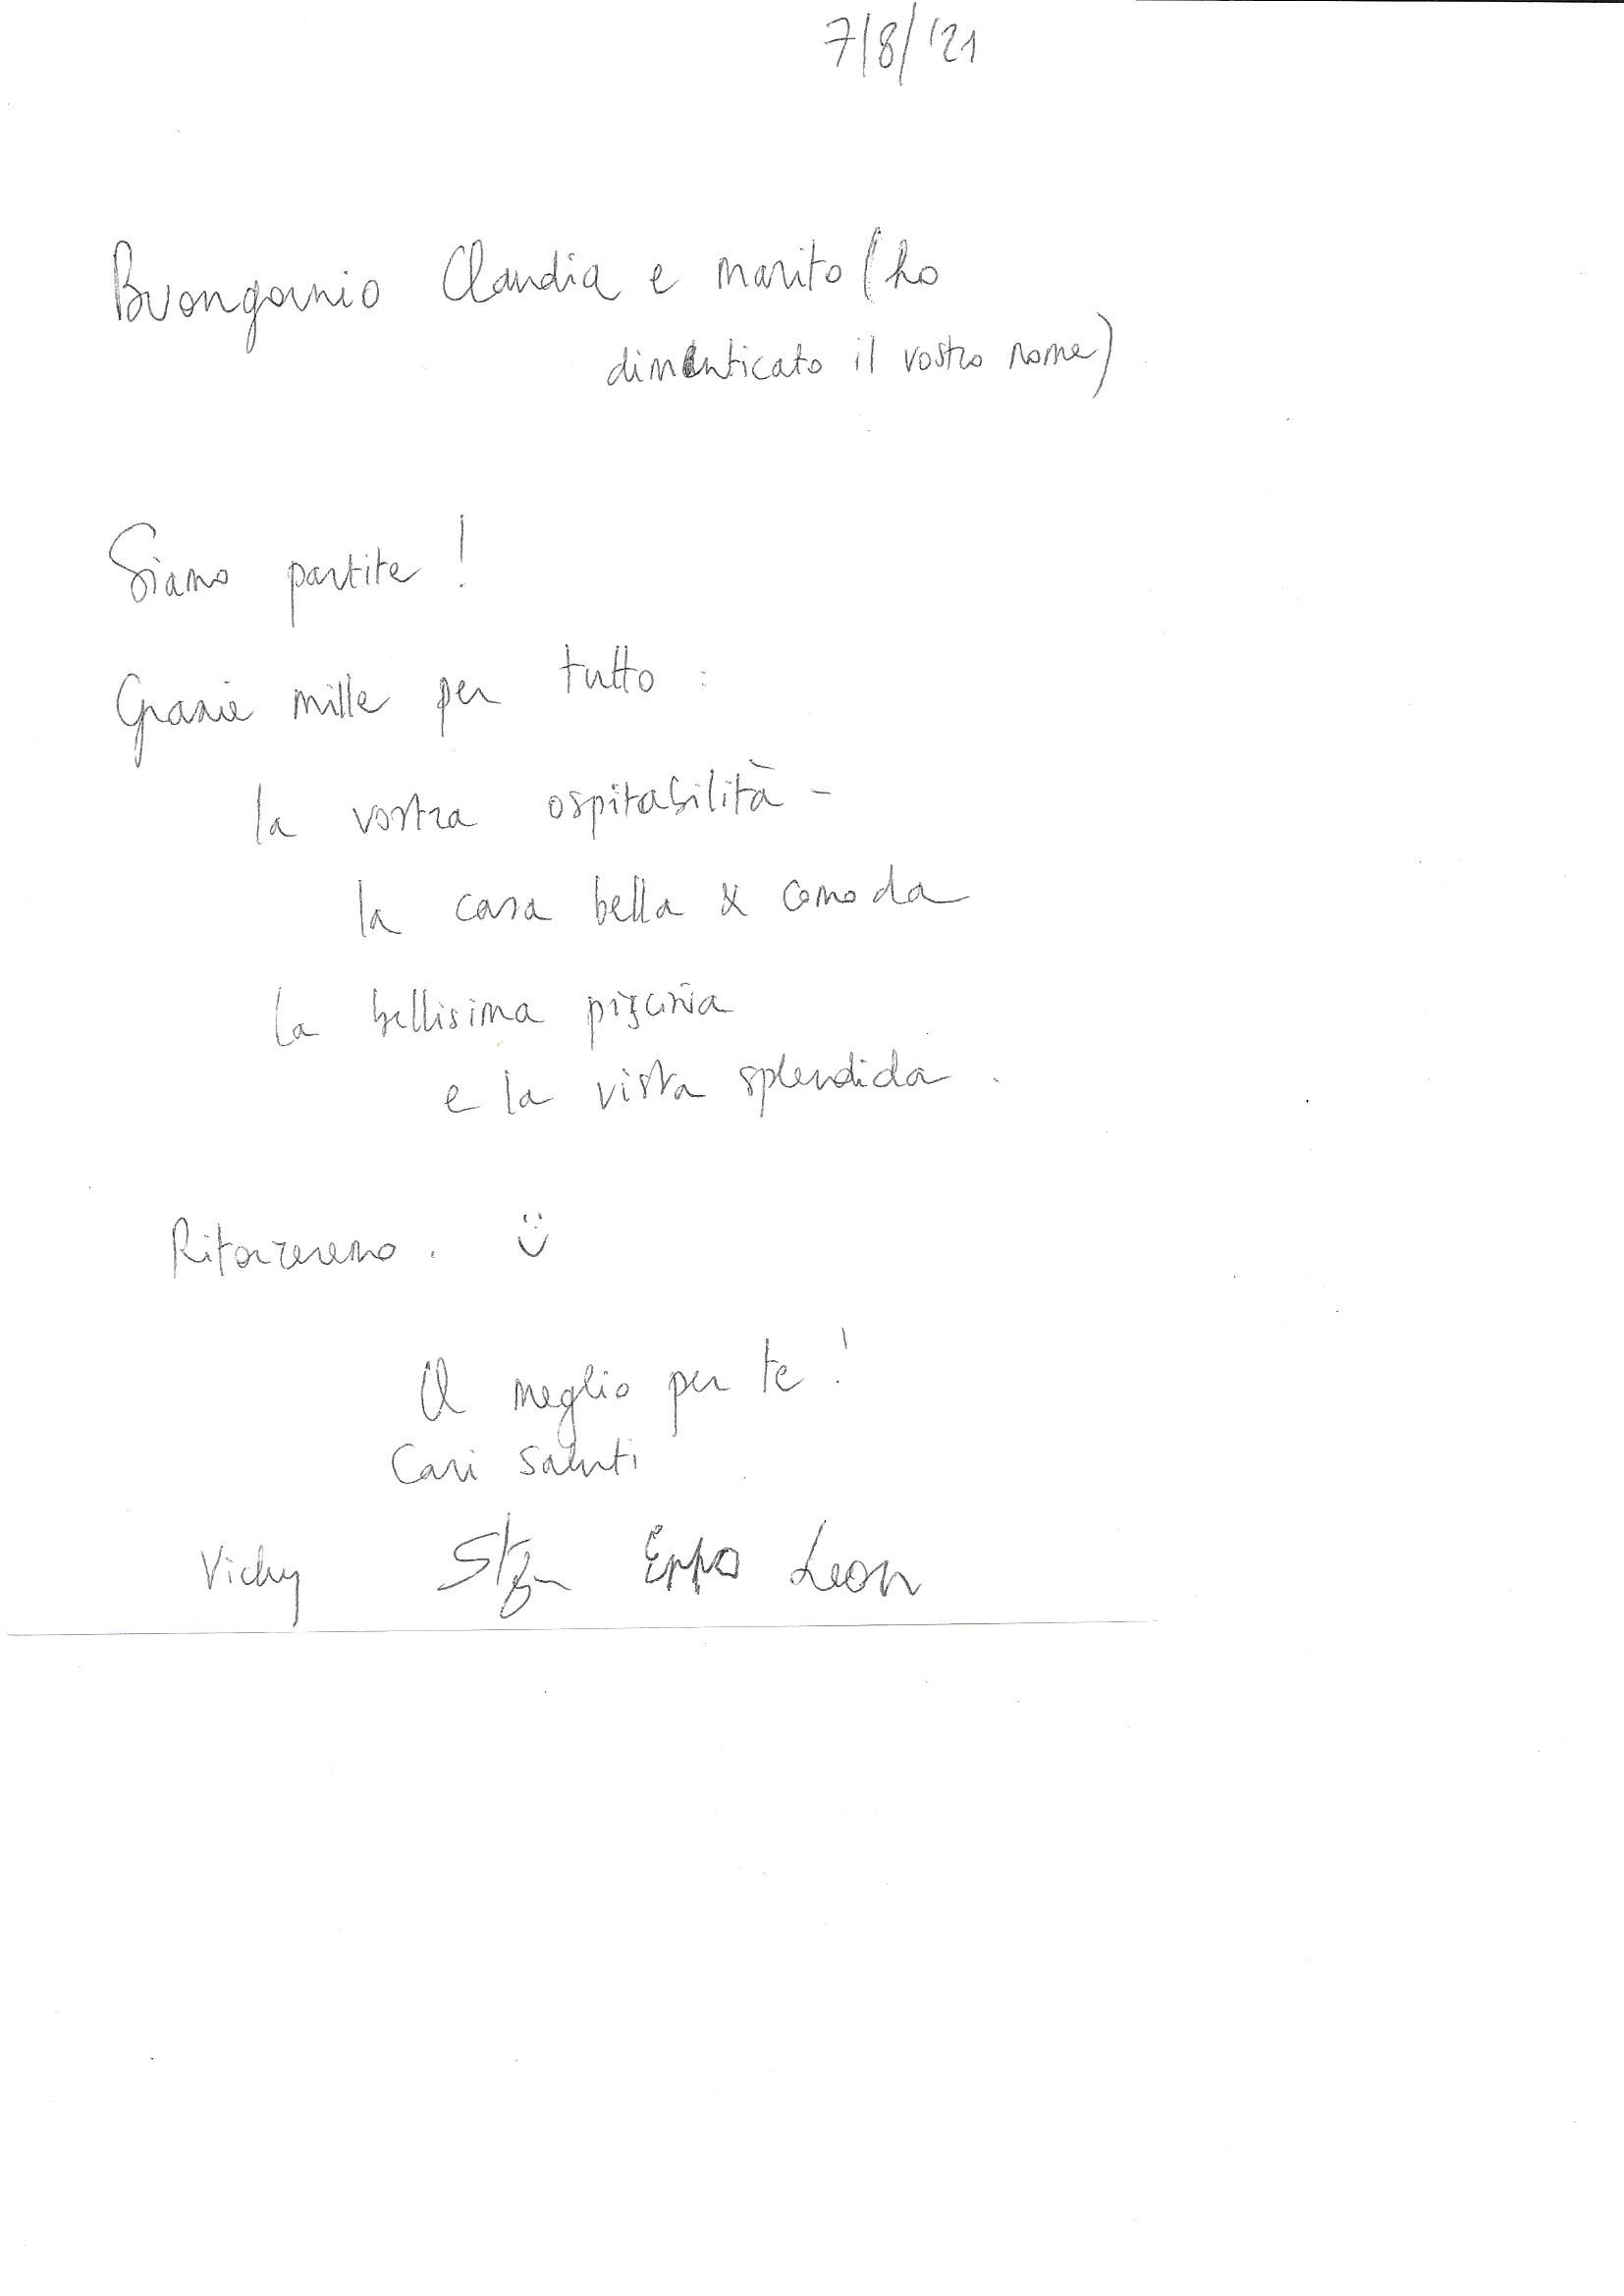 7/8/'21
Buongornio Claudia e marito (ho
dimenticato il vostro nome)
Siamo partite!
Grazie mille per tutto:
la vostra ospitabilità -
la casa bella & comoda
la bellisima piscina
e la vista splendida.
Ritorneremo.
Il meglio per te!
Cari saluti
Vicky Eppo Leon